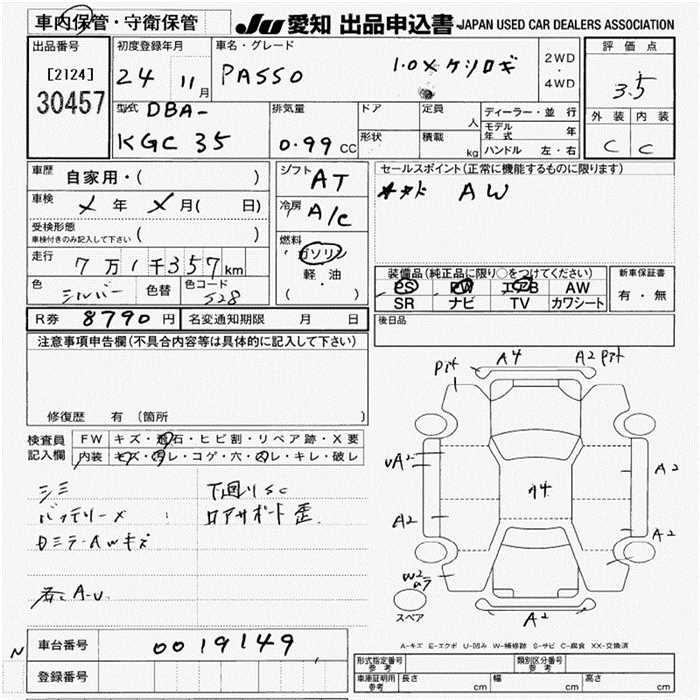 車内保管・守衛保管
JU 愛知 出品申込書 JAPAN USED CAR DEALERS ASSOCIATION
出品番号
[2124]
30457
初度登録年月
24 11月
車名・グレード
PASSO 1.0X
2WD
・
4WD
評価点
3.5
外装 内装
C C
型式 DBA-
KGC 35
排気量
0.99 CC
ドア
形状
定員 人
積載 kg
ディーラー・並行
モデル年式 年
ハンドル 左・右
車歴 自家用・( )
車検 メ 年 メ 月( 日)
受検形態
車検付きのみ記入して下さい ( )
走行 7万1千357km
色 シルバー 色替 色コード S28
シフト AT
冷房 A/C
燃料
ガソリン
・
軽・油
( )
セールスポイント(正常に機能するものに限ります)
AW
装備品(純正品に限り○をつけてください)
PS PW エアB AW
SR ナビ TV カワシート
新車保証書
有・無
R券 8790円 名変通知期限 月 日
後日品
注意事項申告欄(不具合内容等は具体的に記入して下さい)
修復歴 有 (箇所 )
検査員記入欄
FW キズ・飛石・ヒビ割・リペア跡・X要
内装 キズ・汚レ・コゲ・穴・スレ・キレ・破レ
シミ 下回りSC
バッテリーメ ロアサポート歪
AWキズ
A-U.
Pit A4 A2 Pit
UA2
A2
A2
A2
W2
ムラ
A2
スペア
A-キズ E-エクボ U-凹み W-補修跡 S-サビ C-腐食 XX-交換済
N
車台番号 0019149
登録番号
形式指定番号 参考
類別区分番号 参考
車庫証明用 参考 長さ cm 幅 cm 高さ cm